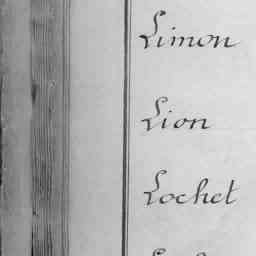 Limon
Lion
Lochet